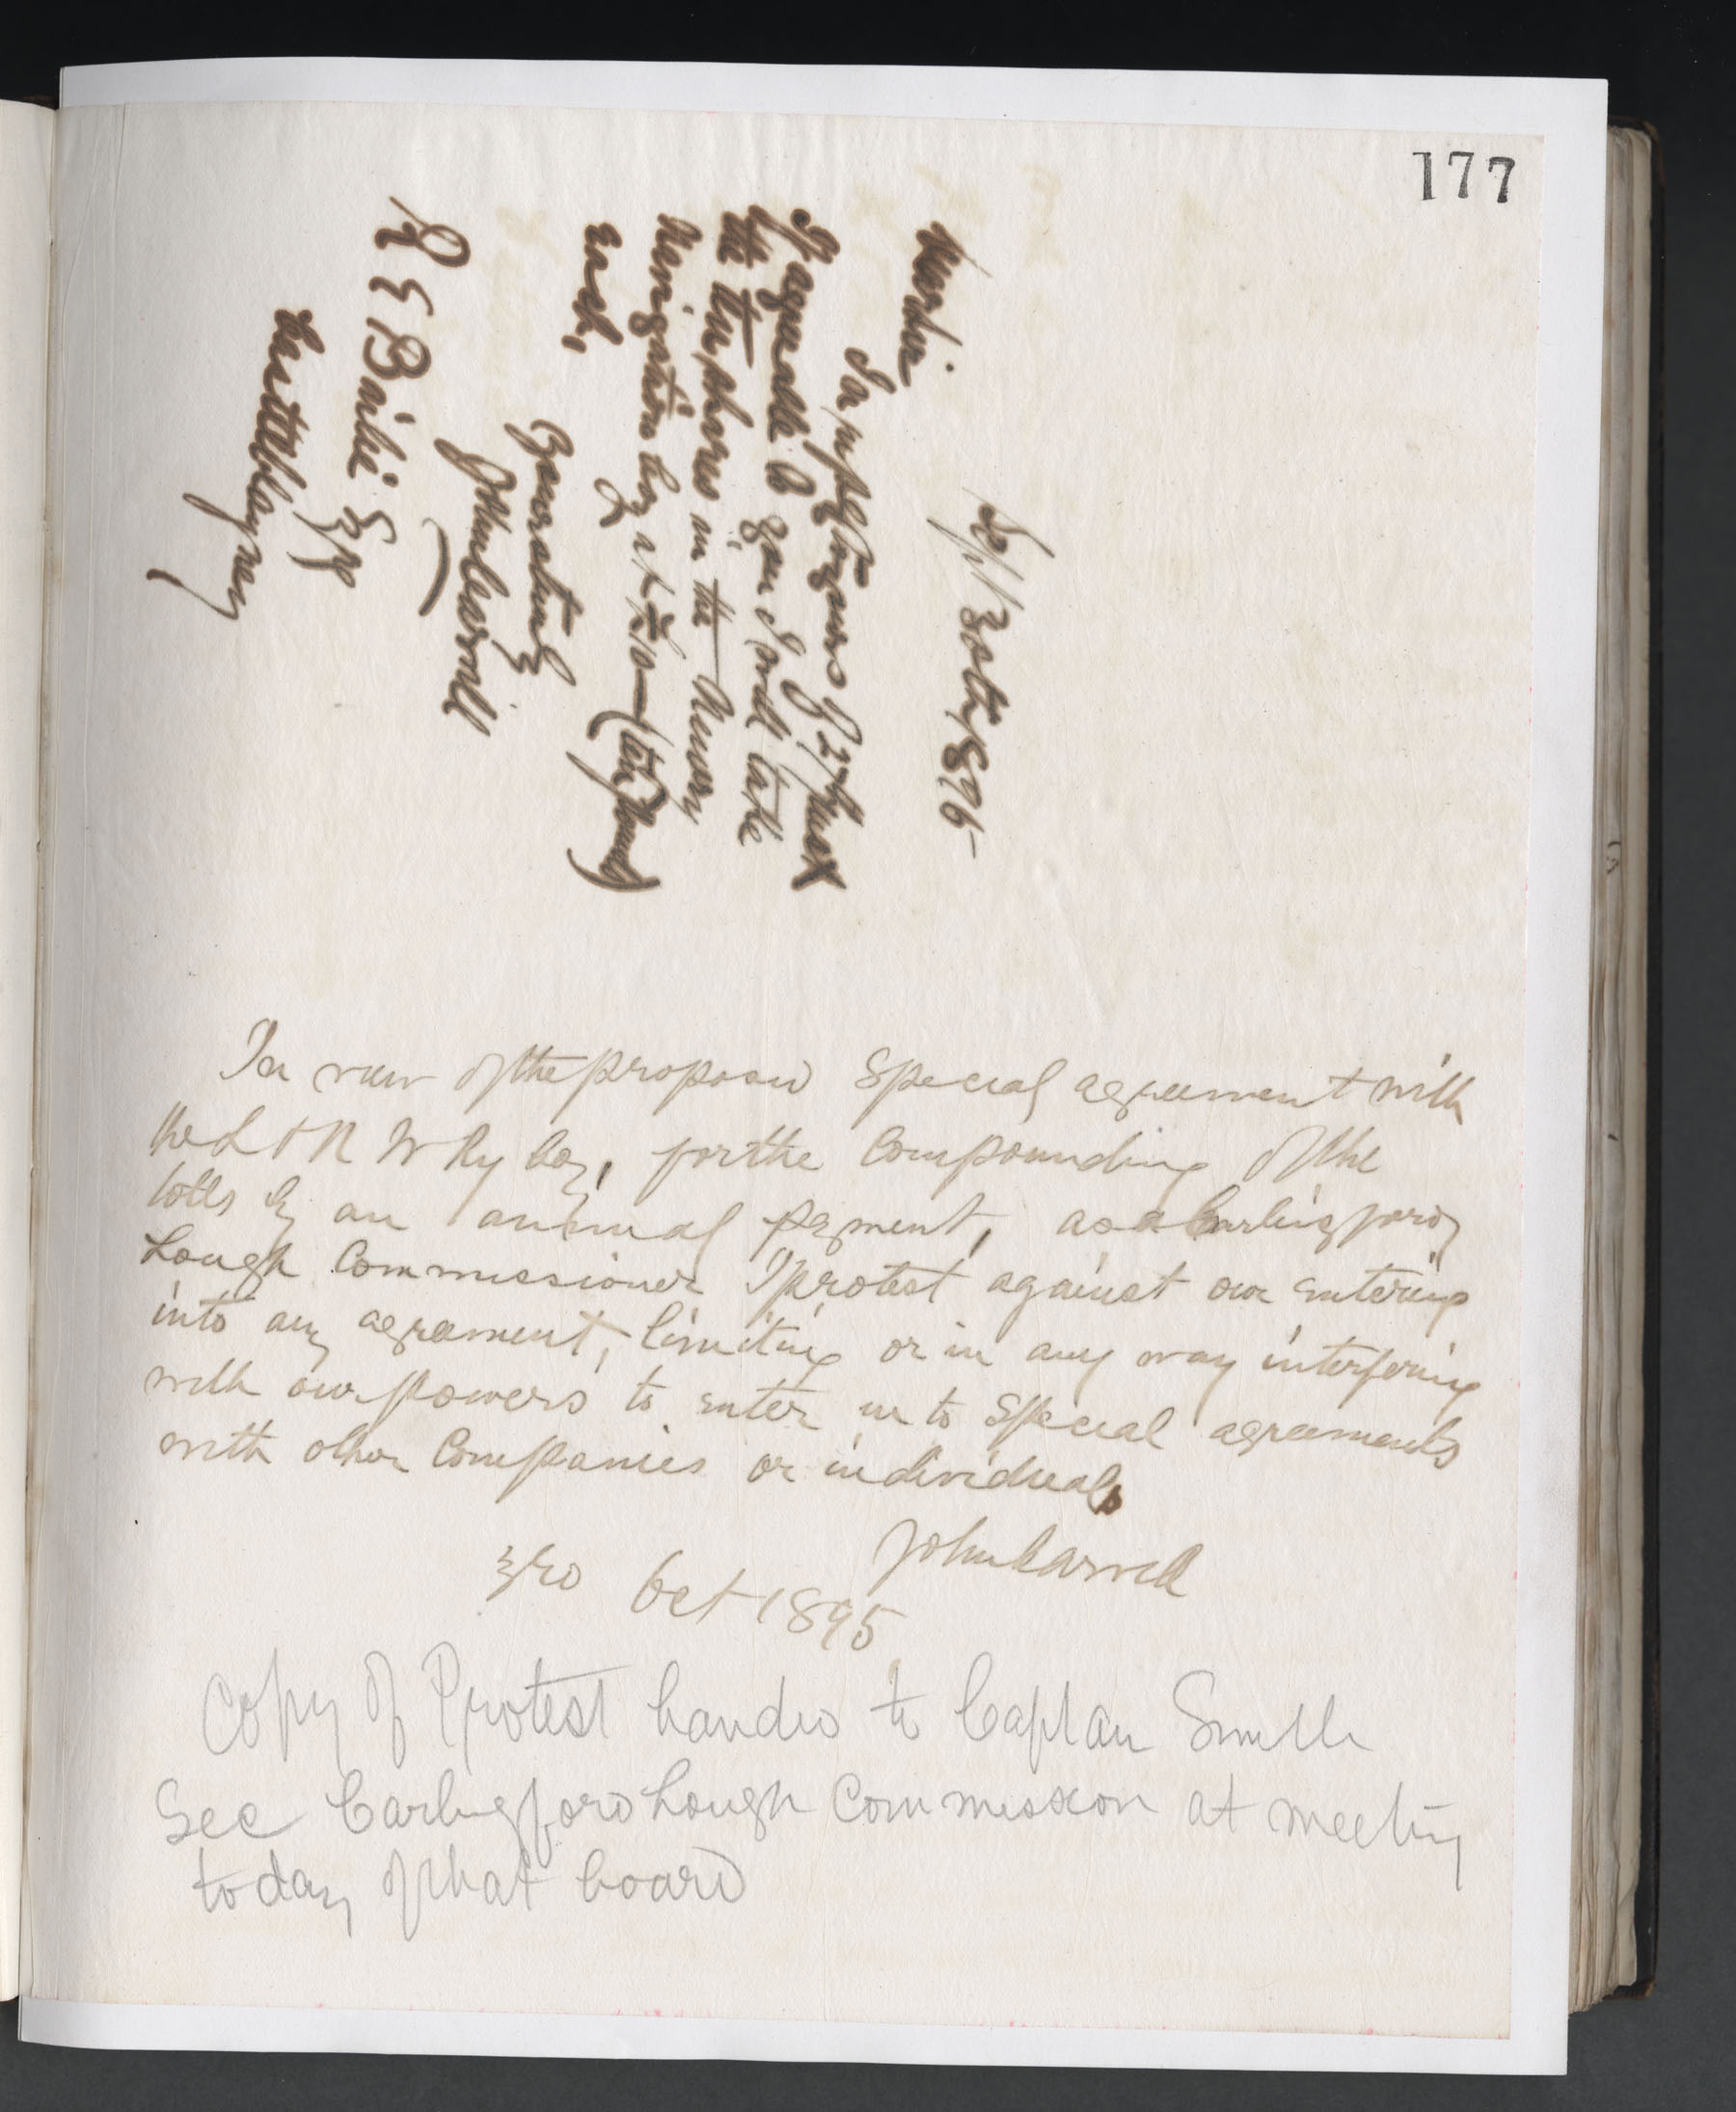 177
30th/1896
Dear Sir
In reply to yours of 27 Inst
If agreeable to you I will take
the ten shares in the Newry
Navigation Coy at £10— (ten pounds)
each.
Yours truly
John Carvill
R G Bailie Esq
Castleblayney
In view of the proposed Special agreement with
the L & N W Ry Coy, for the Compounding of the
tolls by an annual payment, as a Carlingford
Lough Commissioner I protest against our entering
into any agreement, limiting or in any way interfering
with our powers to enter in to Special agreements
with other Companies or individuals
John Carvill
3rd Oct 1895
Copy of Protest handed to Captan Smith
Sec Carlingford Lough Commission at meeting
today of that board